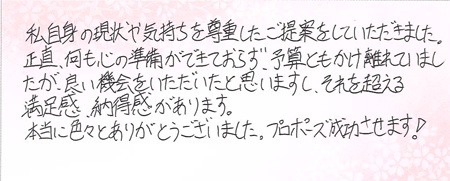 私自身の現状や気持ちを尊重したご提案をしていただきました。
正直、何も心の準備ができておらず、予算ともかけ離れていまし
たが、良い機会をいただいたと思いますし、それを超える
満足感、納得感があります。
本当に色々とありがとうございました。プロポーズ成功させます!